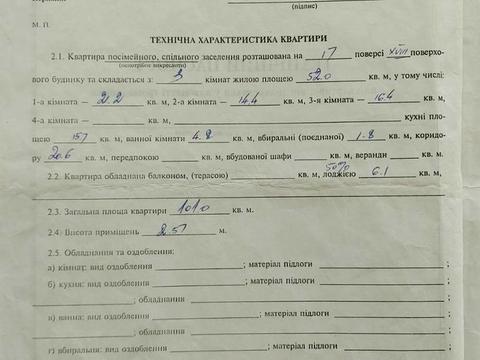 (підпис)
М. П.
ТЕХНІЧНА ХАРАКТЕРИСТИКА КВАРТИРИ
2.1. Квартира посімейного, спільного заселення розташована на 17 поверсі XVIII поверхо-
(непотрібне викреслити)
вого будинку та складається з: 3 кімнат жилою площею 52.0 кв. м, у тому числі:
1-а кімната — 21.2 кв. м, 2-а кімната — 14.4 кв. м, 3-я кімната — 16.4 кв. м,
4-а кімната — кв. м, кв. м, кухні пло-
щею 15,1 кв. м, ванної кімнати 4.2 кв. м, вбиральні (поєднаної) 1.8 кв. м, коридо-
ру 20.6 кв. м, передпокою — кв. м, вбудованої шафи кв. м, веранди кв. м.
50%
2.2. Квартира обладнана балконом, (терасою) кв. м, лоджією 6.1 кв. м,
2.3. Загальна площа квартири 101.0 кв. м.
2.4. Висота приміщень 2.51 м.
2.5. Обладнання та оздоблення:
а) кімнат: вид оздоблення ; матеріал підлоги ;
б) кухня: вид оздоблення ; матеріал підлоги
; обладнання ;
в) ванна: вид оздоблення ; матеріал підлоги
; обладнання ;
г) вбиральня: вид оздоблення ; матеріал підлоги ;